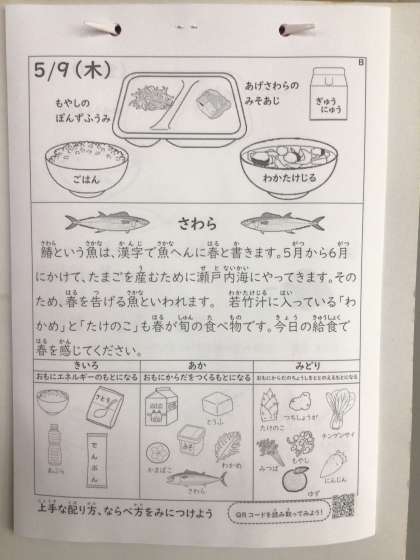 5/9(木)
B
もやしの
ぽんずふうみ
あげさわらの
みそあじ
ぎゅう
にゅう
ごはん
わかたけじる
さわら
鰆という魚は、漢字で魚へんに春と書きます。5月から6月
にかけて、たまごを産むために瀬戸内海にやってきます。その
ため、春を告げる魚といわれます。 若竹汁に入っている「わ
かめ」と「たけのこ」も春が旬の食べ物です。今日の給食で
春を感じてください。
きいろ あか みどり
おもにエネルギーのもとになる おもにからだをつくるもとになる おもにからだのちょうしをととのえるもとになる
さとう
とうふ
たけのこ
つちしょうが
チンゲンサイ
みそ
あぶら
でんぷん
かまぼこ
わかめ
みつば
もやし
にんじん
さわら
ゆず
上手な配り方、ならべ方をみにつけよう
QRコードを読み取ってみよう!